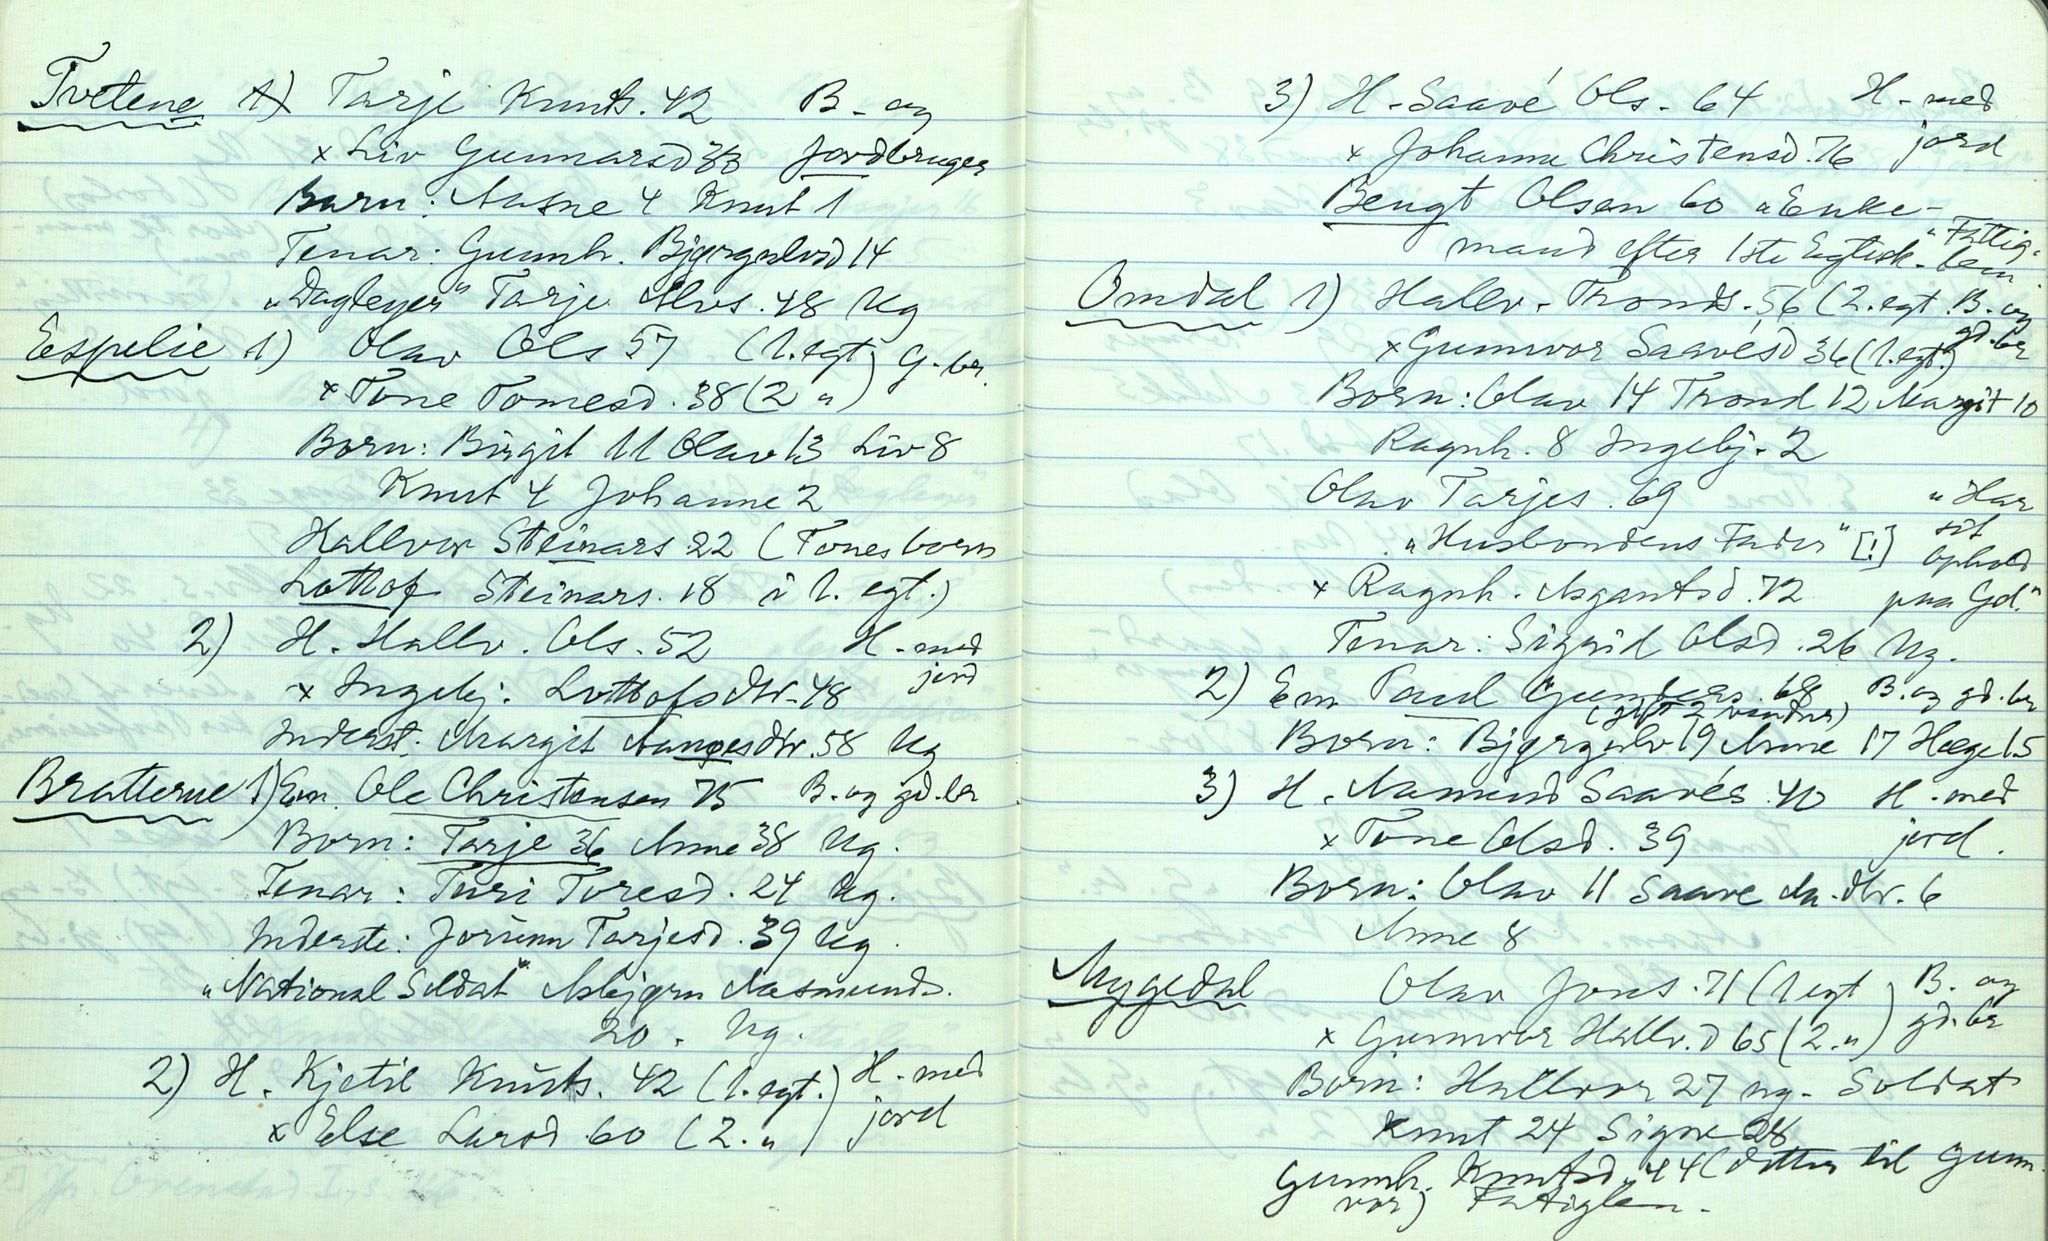 Tvetene 1) Tarje Knuts. 42 B- og
x Liv Gunnarsd 33 jordbruger
Born: Aasne 4 Knut 1
Tenar: Gunnh. Bjørgulvsd 14
"Dagleyer" Tarje Alvs. 48 Ug
Espelie 1) Olav Ols 57 (1. egt) G.br.
x Tone Tomesd. 38 (2 ")
Born: Birgit 11 Olav 13 Liv 8
Knut 4 Johanne 2
Hallvor Steinars 22 (Tones born
Lottof Steinars. 18 i 1. egt.)
2) H. Hallv. Ols. 52 H- med
x Ingebj. Lottofsdtr. 48 jord
Inderst. Margit Aanesdtr. 58 Ug
Bratterne 1) Em. Ole Christensen 75 B. og gd.br
Born: Tarje 36 Anne 38 Ug.
Tenar: Turi Toresd. 24 Ug.
Inderste: Jorunn Tarjesd. 39 Ug.
"National Soldat" Asbjørn Aasmunds.
20. Ug.
2) H. Kjetil Knuts. 42 (1. egt.) H- med
x Else Larsd 60 (2. ") jord
3) H- Saavé Ols- 64 H- med
x Johanne Christensd. 76 jord
Bengt Olsen 60 "Enke-
mand efter 1ste Egtesk-" "Fattig-
lem
Omdal 1) Hallv. Tronds. 56 (2. egt. B. og
x Gunnvor Saavésd 36 (1. egt.) gd.br
Born: Olav 14 Trond 12 Margit 10
Ragnh. 8 Ingebj. 2
Olav Tarjes. 69 "Har
"Husbondens Fader" [!] sit
Ophold
x Ragnh. Asgautsd. 72 paa Gd."
Tenar: Sigrid Olsd. 26 Ug.
2) Em Paul 68 B. og gd.br
(gift 2 )
Born: Bjørgulv 19 Anne 17 Hæge 15
3) H. Aamund Saavés. 40 H- med
x Tone Olsd. 39 jord.
Born: Olav 11 Saave Aa.dtr. 6
Anne 8
Nygedal Olav Jons. 71 (1 egt) B. og
x Gunnvor Hallv.d 65 (2. ") gd.br
Born: Hallvor 27 ug- Soldat
Knut 24 Signe 28
Gunnh. Knutsd. 44 (dotter til Gunn-
vor) Fattiglem-